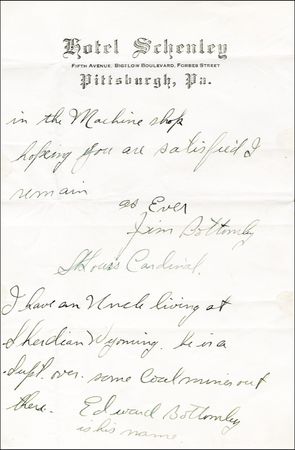 Hotel Schenley
FIFTH AVENUE, BIGELOW BOULEVARD, FORBES STREET
Pittsburgh, Pa.
in the Machine shop
hopeing you are satisfied I
remain
as Ever
Jim Bottomly
St Louis Cardinal.
I have an Uncle living at
Sherdian Wyoming. He is a
Supt. over some Coal mines out
there. Edward Bottomley
is his name.